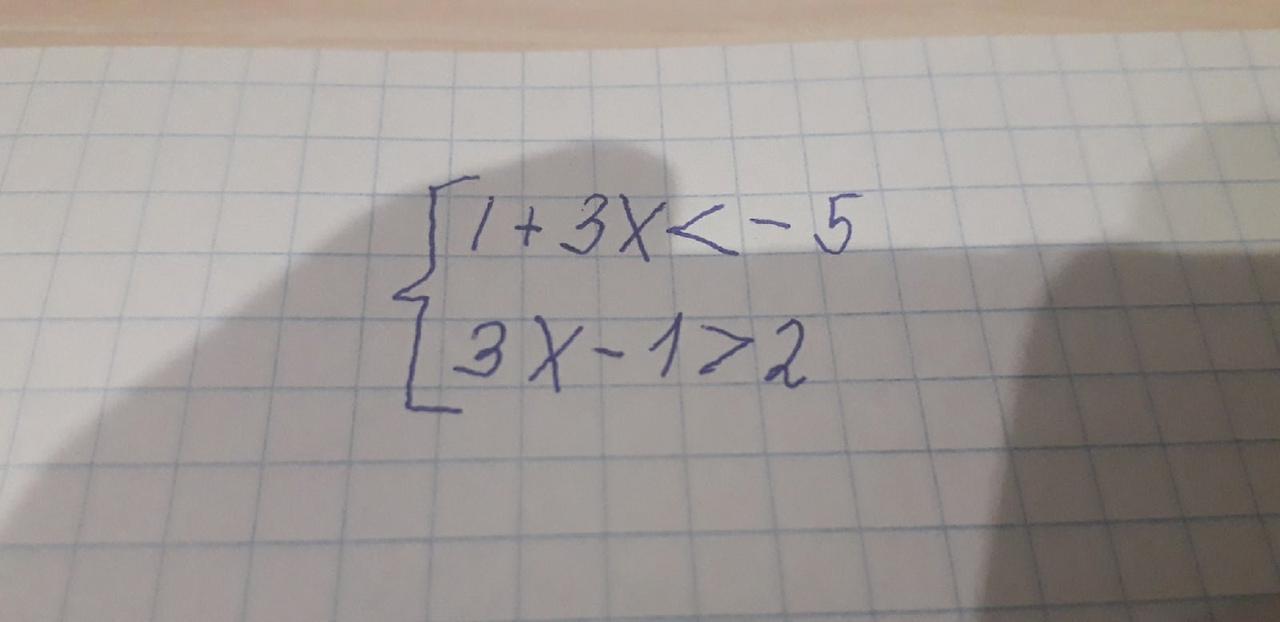 1 + 3x < - 5
3x - 1 > 2